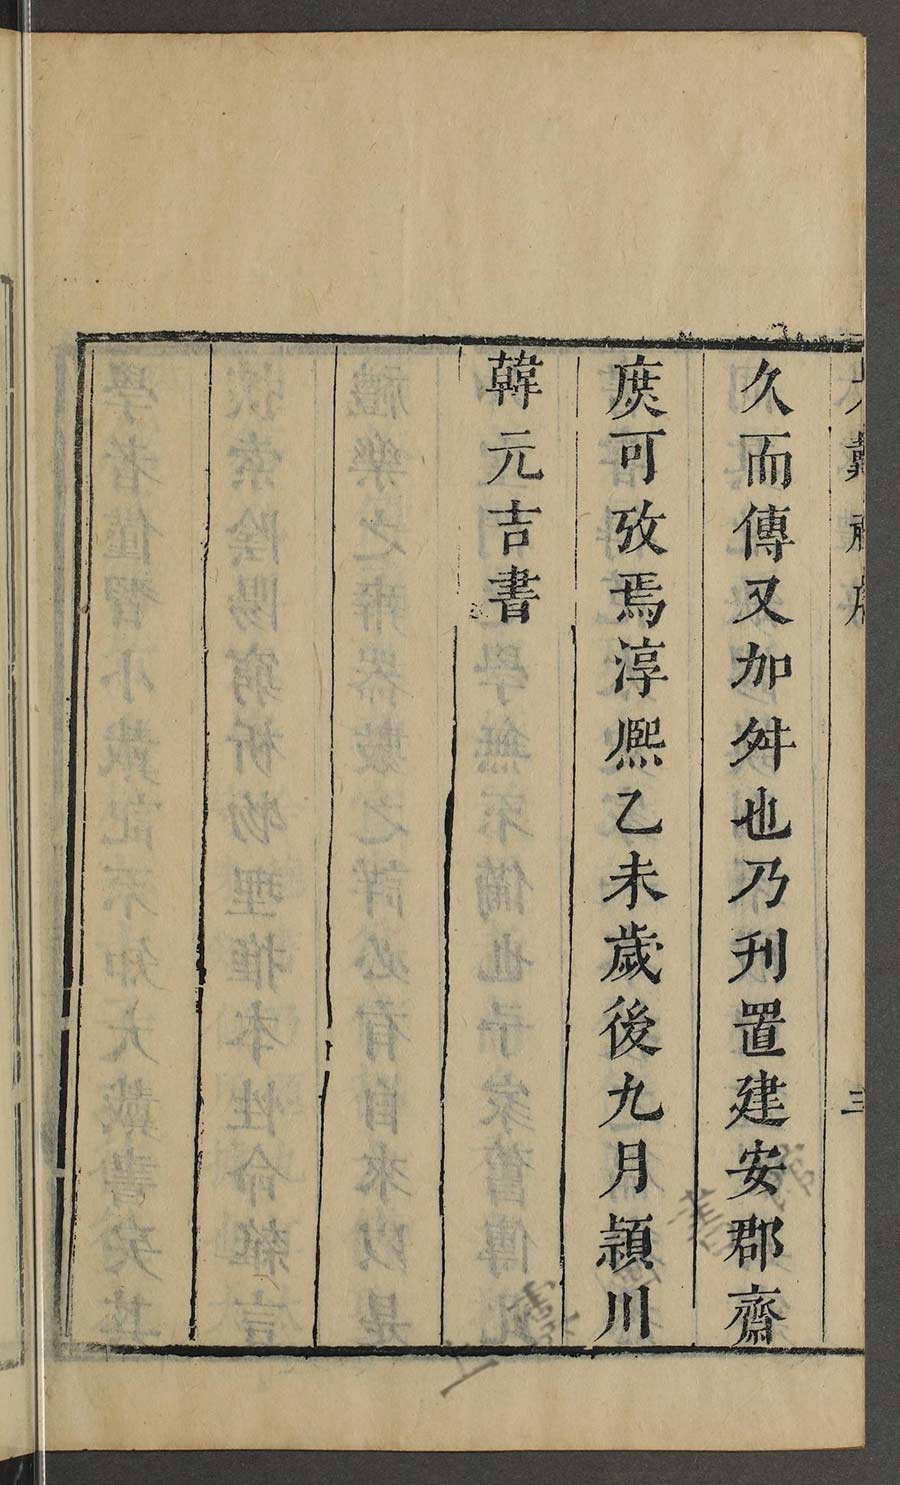 大戴禮序
三
久而傳又加舛也乃刊置建安郡齋
庻可攷焉淳熈乙未歲後九月潁川
韓元吉書